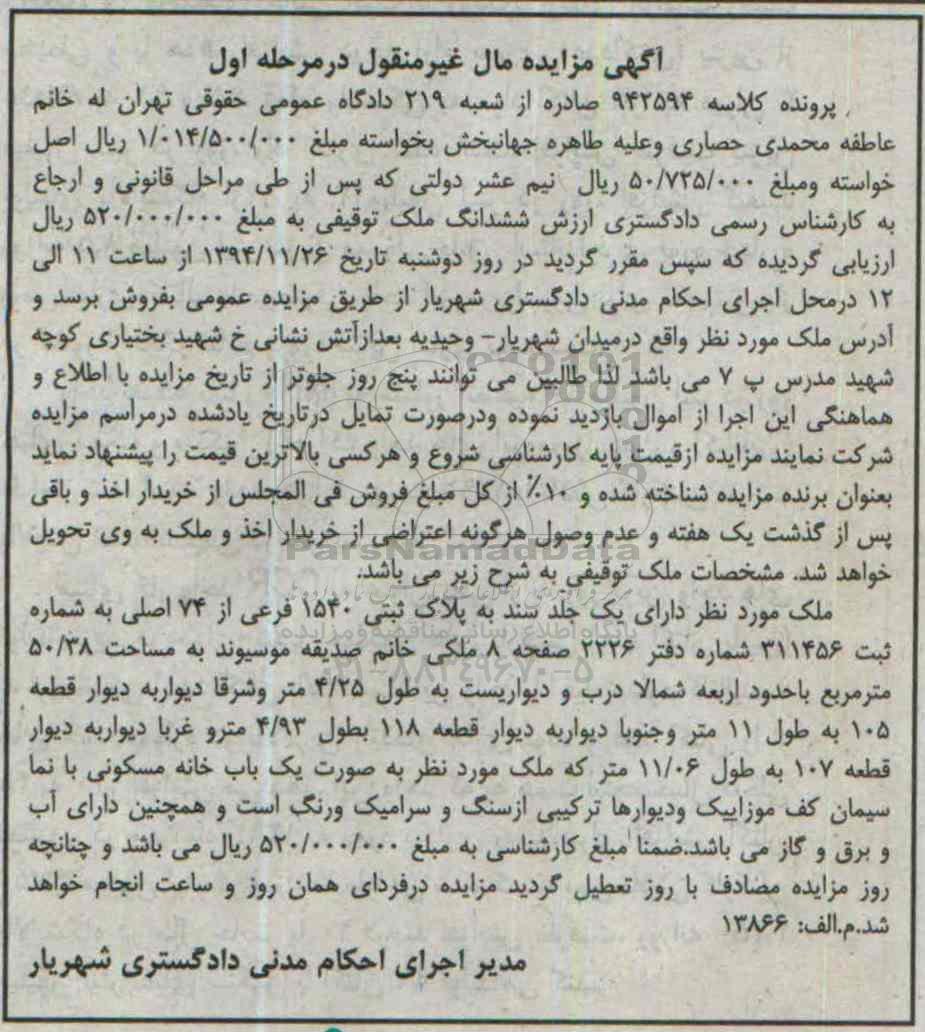 آگهی مزایده مال غیرمنقول درمرحله اول
پرونده کلاسه ۹۴۲۵۹۴ صادره از شعبه ۲۱۹ دادگاه عمومی حقوقی تهران له خانم
عاطفه محمدی حصاری وعلیه طاهره جهانبخش بخواسته مبلغ ۱/۰۱۴/۵۰۰/۰۰۰ ریال اصل
خواسته ومبلغ ۵۰/۷۲۵/۰۰۰ ریال نیم عشر دولتی که پس از طی مراحل قانونی و ارجاع
به کارشناس رسمی دادگستری ارزش ششدانگ ملک توقیفی به مبلغ ۵۲۰/۰۰۰/۰۰۰ ریال
ارزیابی گردیده که سپس مقرر گردید در روز دوشنبه تاریخ ۱۳۹۴/۱۱/۲۶ از ساعت ۱۱ الی
۱۲ درمحل اجرای احکام مدنی دادگستری شهریار از طریق مزایده عمومی بفروش برسد و
آدرس ملک مورد نظر واقع درمیدان شهریار- وحیدیه بعدازآتش نشانی خ شهید بختیاری کوچه
شهید مدرس پ ۷ می باشد لذا طالبین می توانند پنج روز جلوتر از تاریخ مزایده با اطلاع و
هماهنگی این اجرا از اموال بازدید نموده ودرصورت تمایل درتاریخ یادشده درمراسم مزایده
شرکت نمایند مزایده ازقیمت پایه کارشناسی شروع و هرکسی بالاترین قیمت را پیشنهاد نماید
بعنوان برنده مزایده شناخته شده و ۱۰٪ از کل مبلغ فروش فی المجلس از خریدار اخذ و باقی
پس از گذشت یک هفته و عدم وصول هرگونه اعتراضی از خریدار اخذ و ملک به وی تحویل
ParsNamadData
خواهد شد. مشخصات ملک توقیفی به شرح زیر می باشد:
ملک مورد نظر دارای یک جلد سند به پلاک ثبتی ۱۵۴۰ فرعی از ۷۴ اصلی به شماره
پایگاه اطلاع رسانی مناقصه و مزایده
ثبت ۳۱۱۴۵۶ شماره دفتر ۲۲۲۶ صفحه ۸ ملکی خانم صدیقه موسیوند به مساحت ۵۰/۳۸
۰۲۱-۸۸۳۴۹۶۷۰-۵
مترمربع باحدود اربعه شمالا درب و دیواریست به طول ۴/۲۵ متر وشرقا دیواربه دیوار قطعه
۱۰۵ به طول ۱۱ متر وجنوبا دیواربه دیوار قطعه ۱۱۸ بطول ۴/۹۳ مترو غربا دیواربه دیوار
قطعه ۱۰۷ به طول ۱۱/۰۶ متر که ملک مورد نظر به صورت یک باب خانه مسکونی با نما
سیمان کف موزاییک ودیوارها ترکیبی ازسنگ و سرامیک ورنگ است و همچنین دارای آب
و برق و گاز می باشد.ضمنا مبلغ کارشناسی به مبلغ ۵۲۰/۰۰۰/۰۰۰ ریال می باشد و چنانچه
روز مزایده مصادف با روز تعطیل گردید مزایده درفردای همان روز و ساعت انجام خواهد
شد.م.الف: ۱۳۸۶۶
مدیر اجرای احکام مدنی دادگستری شهریار